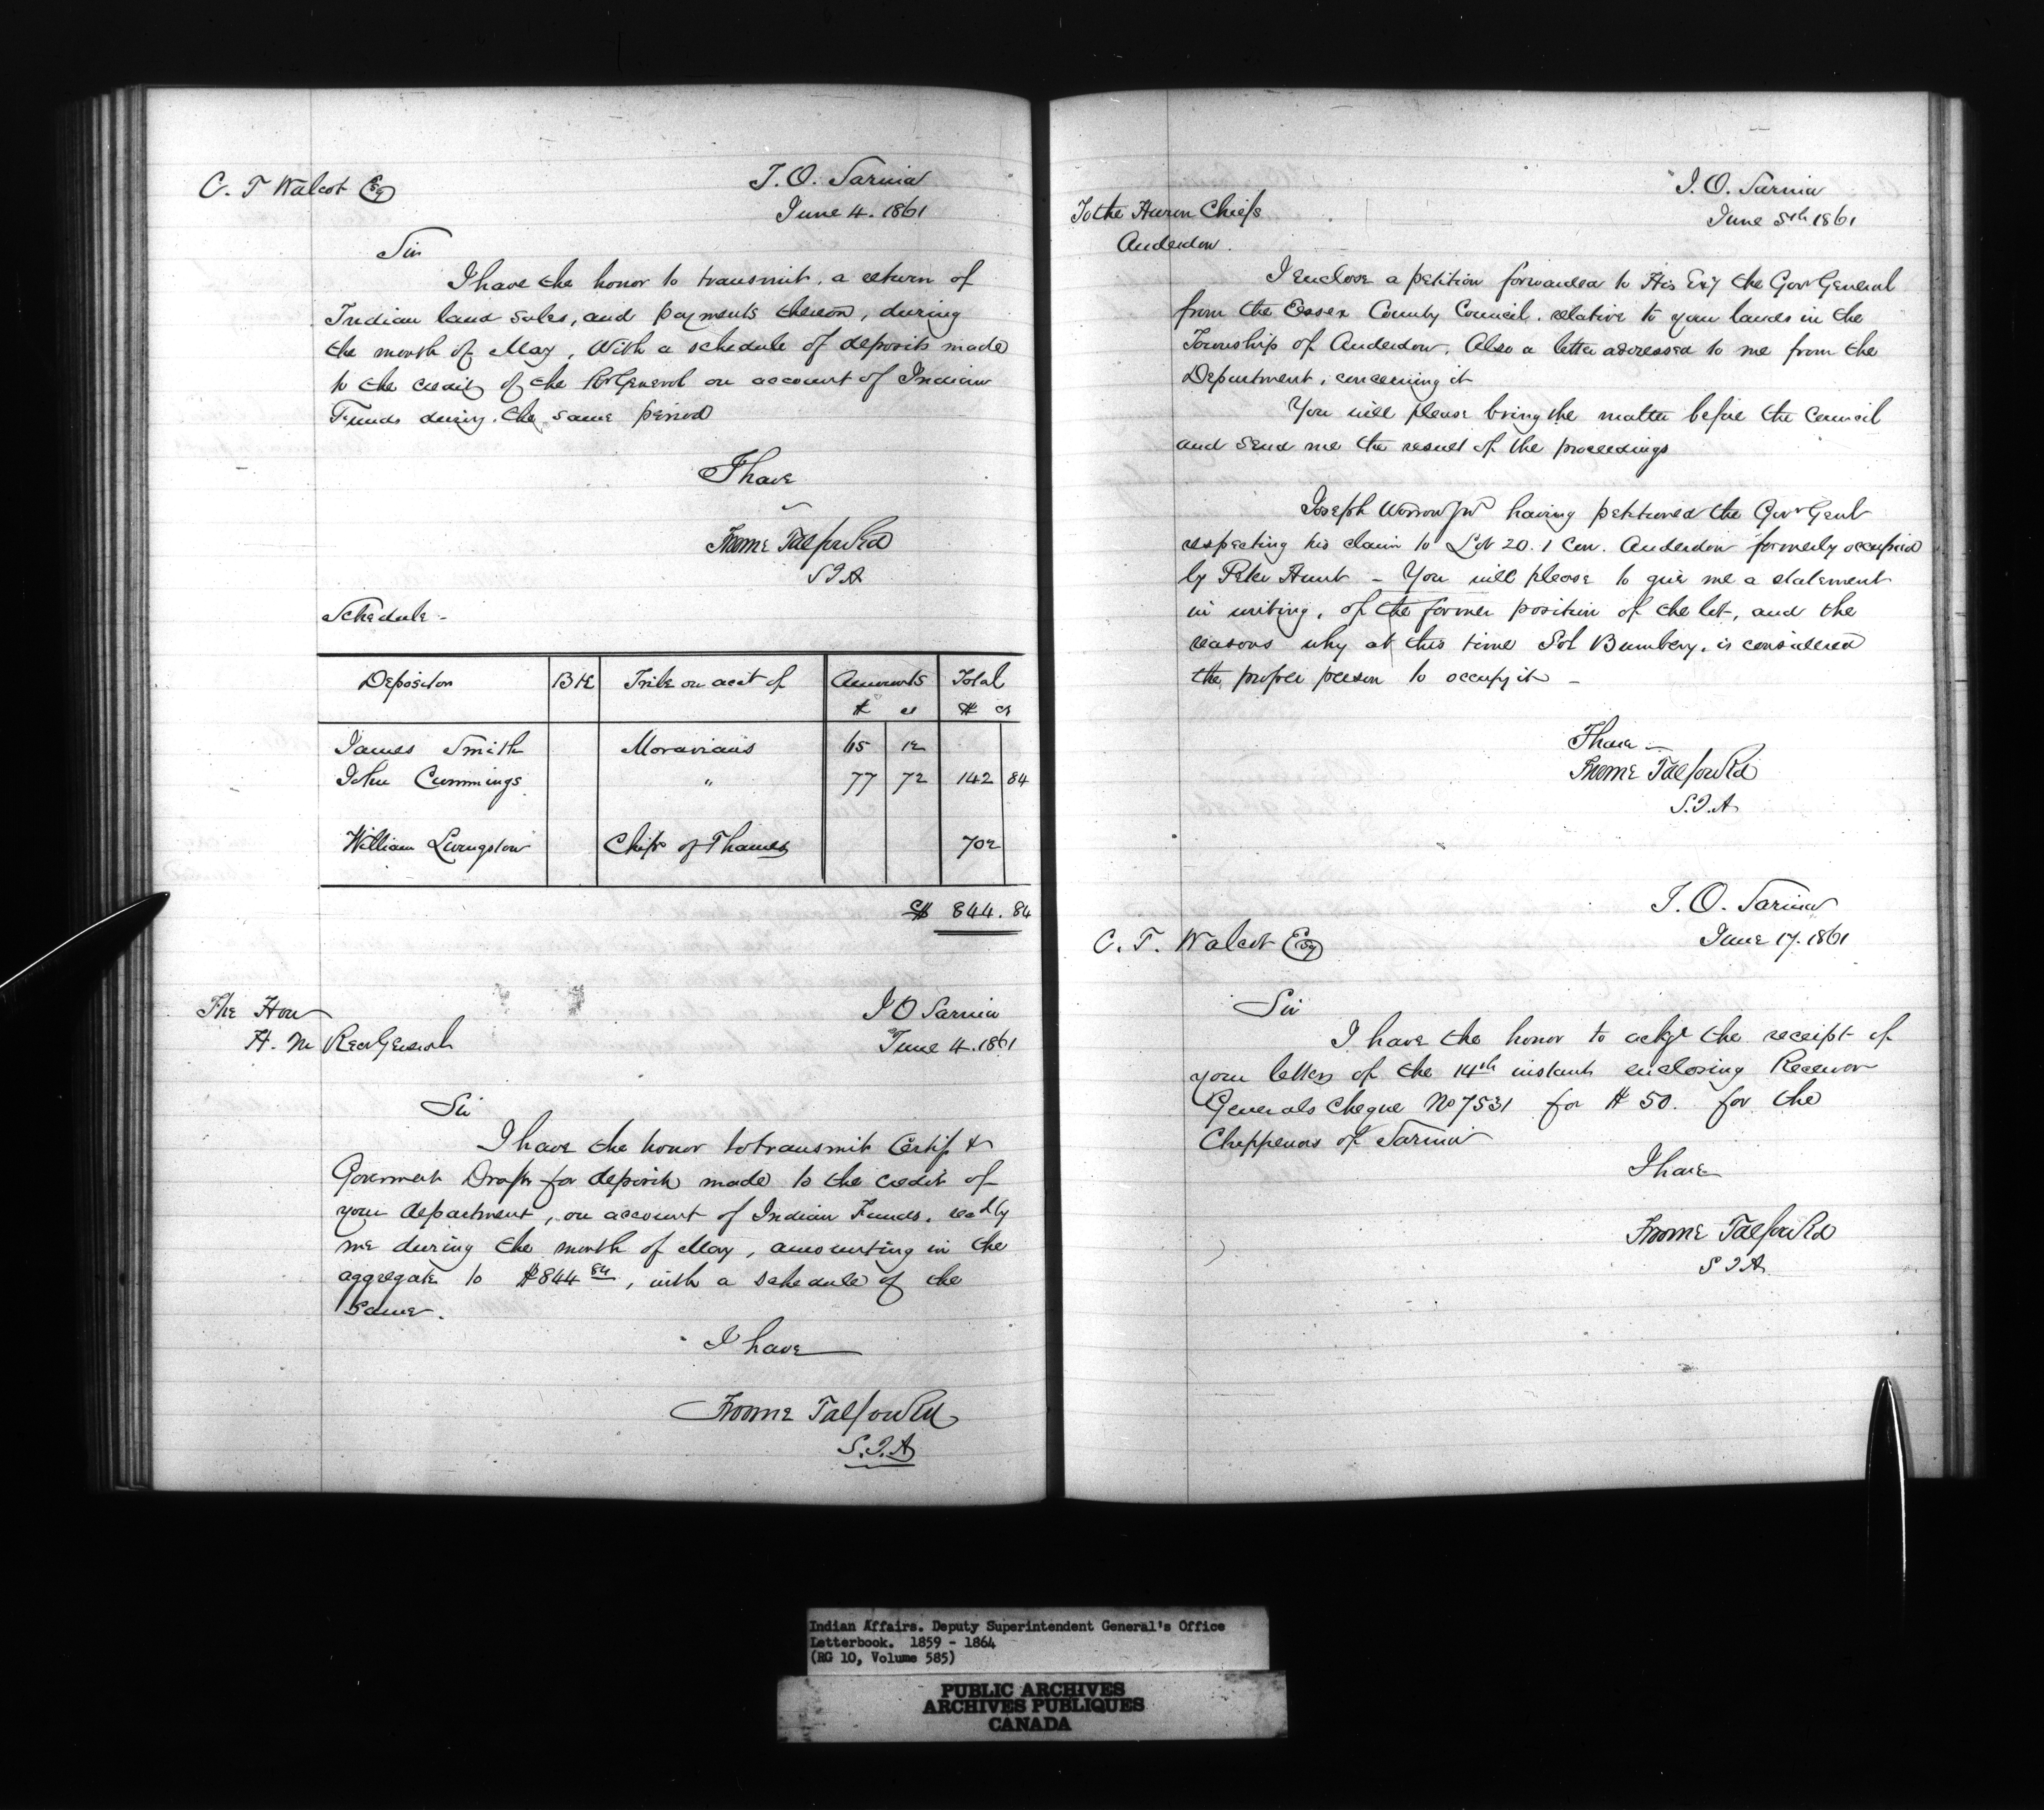 C. T Walcot Esq
I. O. Sarnia
June 4. 1861
Sir
I have the honor to transmit, a return of
Indian land sales, and payments thereon, during
the month of May, With a schedule of deposits made
to the credit of the Rr General on account of Indian
Funds during the same period
I have
Froome Talfourd
S I A
Schedule -
Depositor BK Tribe on acct of Amounts Total
$ cs $ cs
James Smith Moravians 65 12
John Cummings " 77 72 142 84
William Livingston Chips of Thames 702
$ 844. 84
The Hon
H. M RecrGeneral
I O Sarnia
June 4. 1861
Sir
I have the honor to transmit Certif &
Goverment Drafts for deposits made to the credit of
your department, on account of Indian Funds. recd by
me during the month of May, amounting in the
aggregate to $844 84, with a schedule of the
same.
I have
Froome Talfourd
S.I.A
I. O. Sarnia
June 5th 1861
To the Huron Chiefs
Anderdon.
I enclose a petition forwarded to His Exy the Govr General
from the Essex County Council, relative to your lands in the
Township of Anderdon. Also a letter addressed to me from the
Department, concerning it
You will please bring the matter before the Council
and send me the result of the proceedings
Joseph Warrow Jnr having petitioned the Govr Genl
respecting his claim to Lot 20. 1 Con. Anderdon formerly occupied
by Peter Hunt - You will please to give me a statement
in writing, of the former position of the lot, and the
reasons why at this time Sol Bumbery, is considered
the proper person to occupy it -
I have
Froome Talfourd
S.I.A
I. O. Sarnia
June 17. 1861
C. T. Walcot Esq
Sir
I have the honor to ackge the receipt of
your letters of the 14th instant enclosing Receiver
Generals Cheque No 7531 for $ 50. for the
Chippewas of Sarnia
I have
Froome Talfourd
S I A
Indian Affairs. Deputy Superintendent General's Office
Letterbook. 1859 - 1864
(RG 10, Volume 585)
PUBLIC ARCHIVES
ARCHIVES PUBLIQUES
CANADA